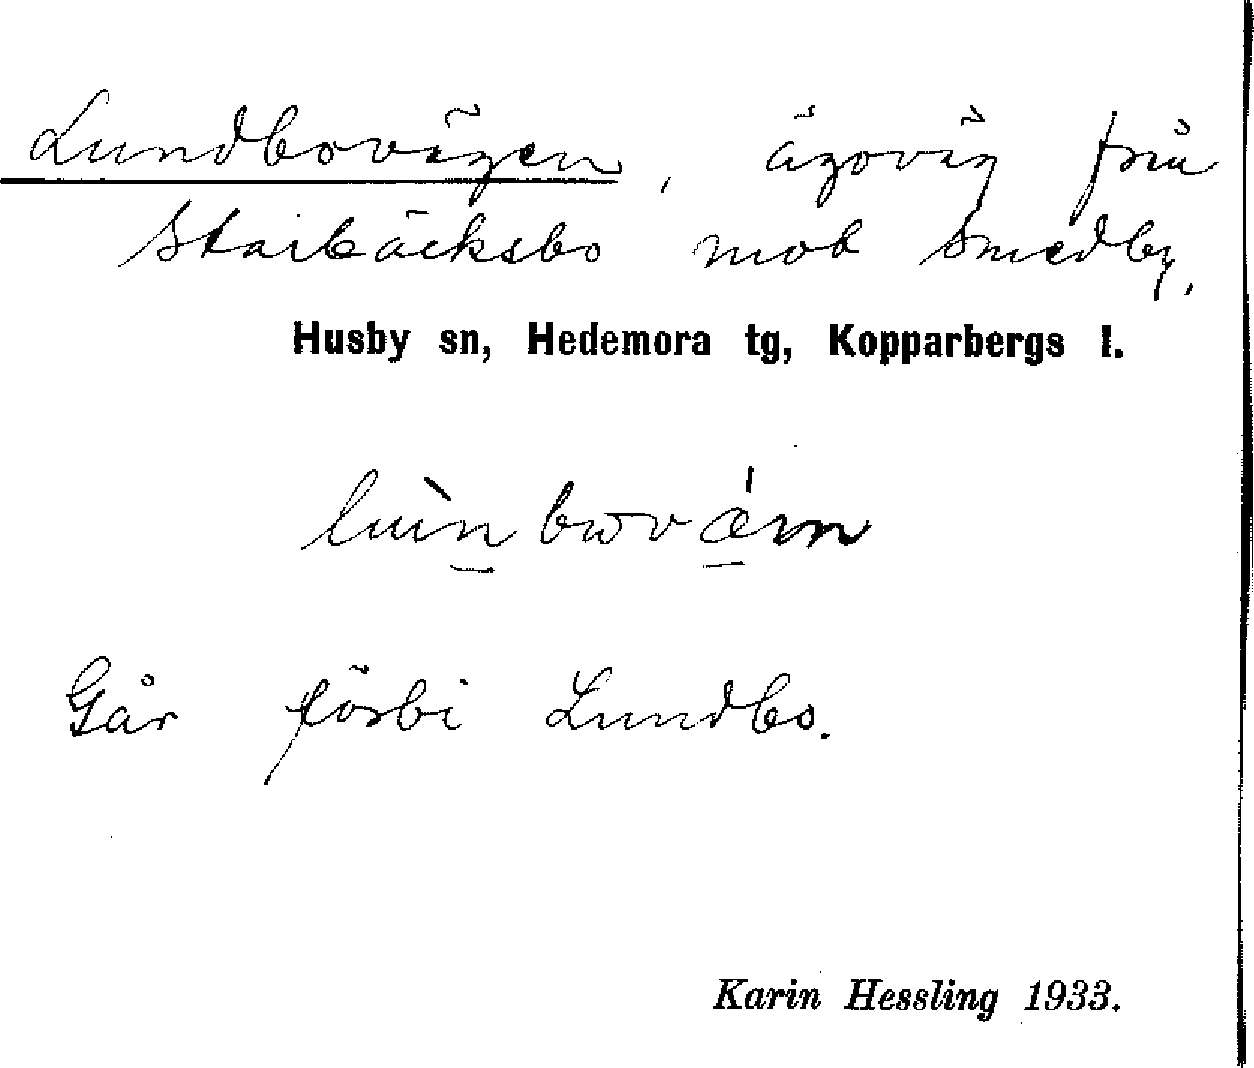 Lundbovägen, ägoväg från
Starbäcksbo mot Smedby.
Husby sn, Hedemora tg, Kopparbergs l.
Går förbi Lundbo.
Karin Hessling 1933.